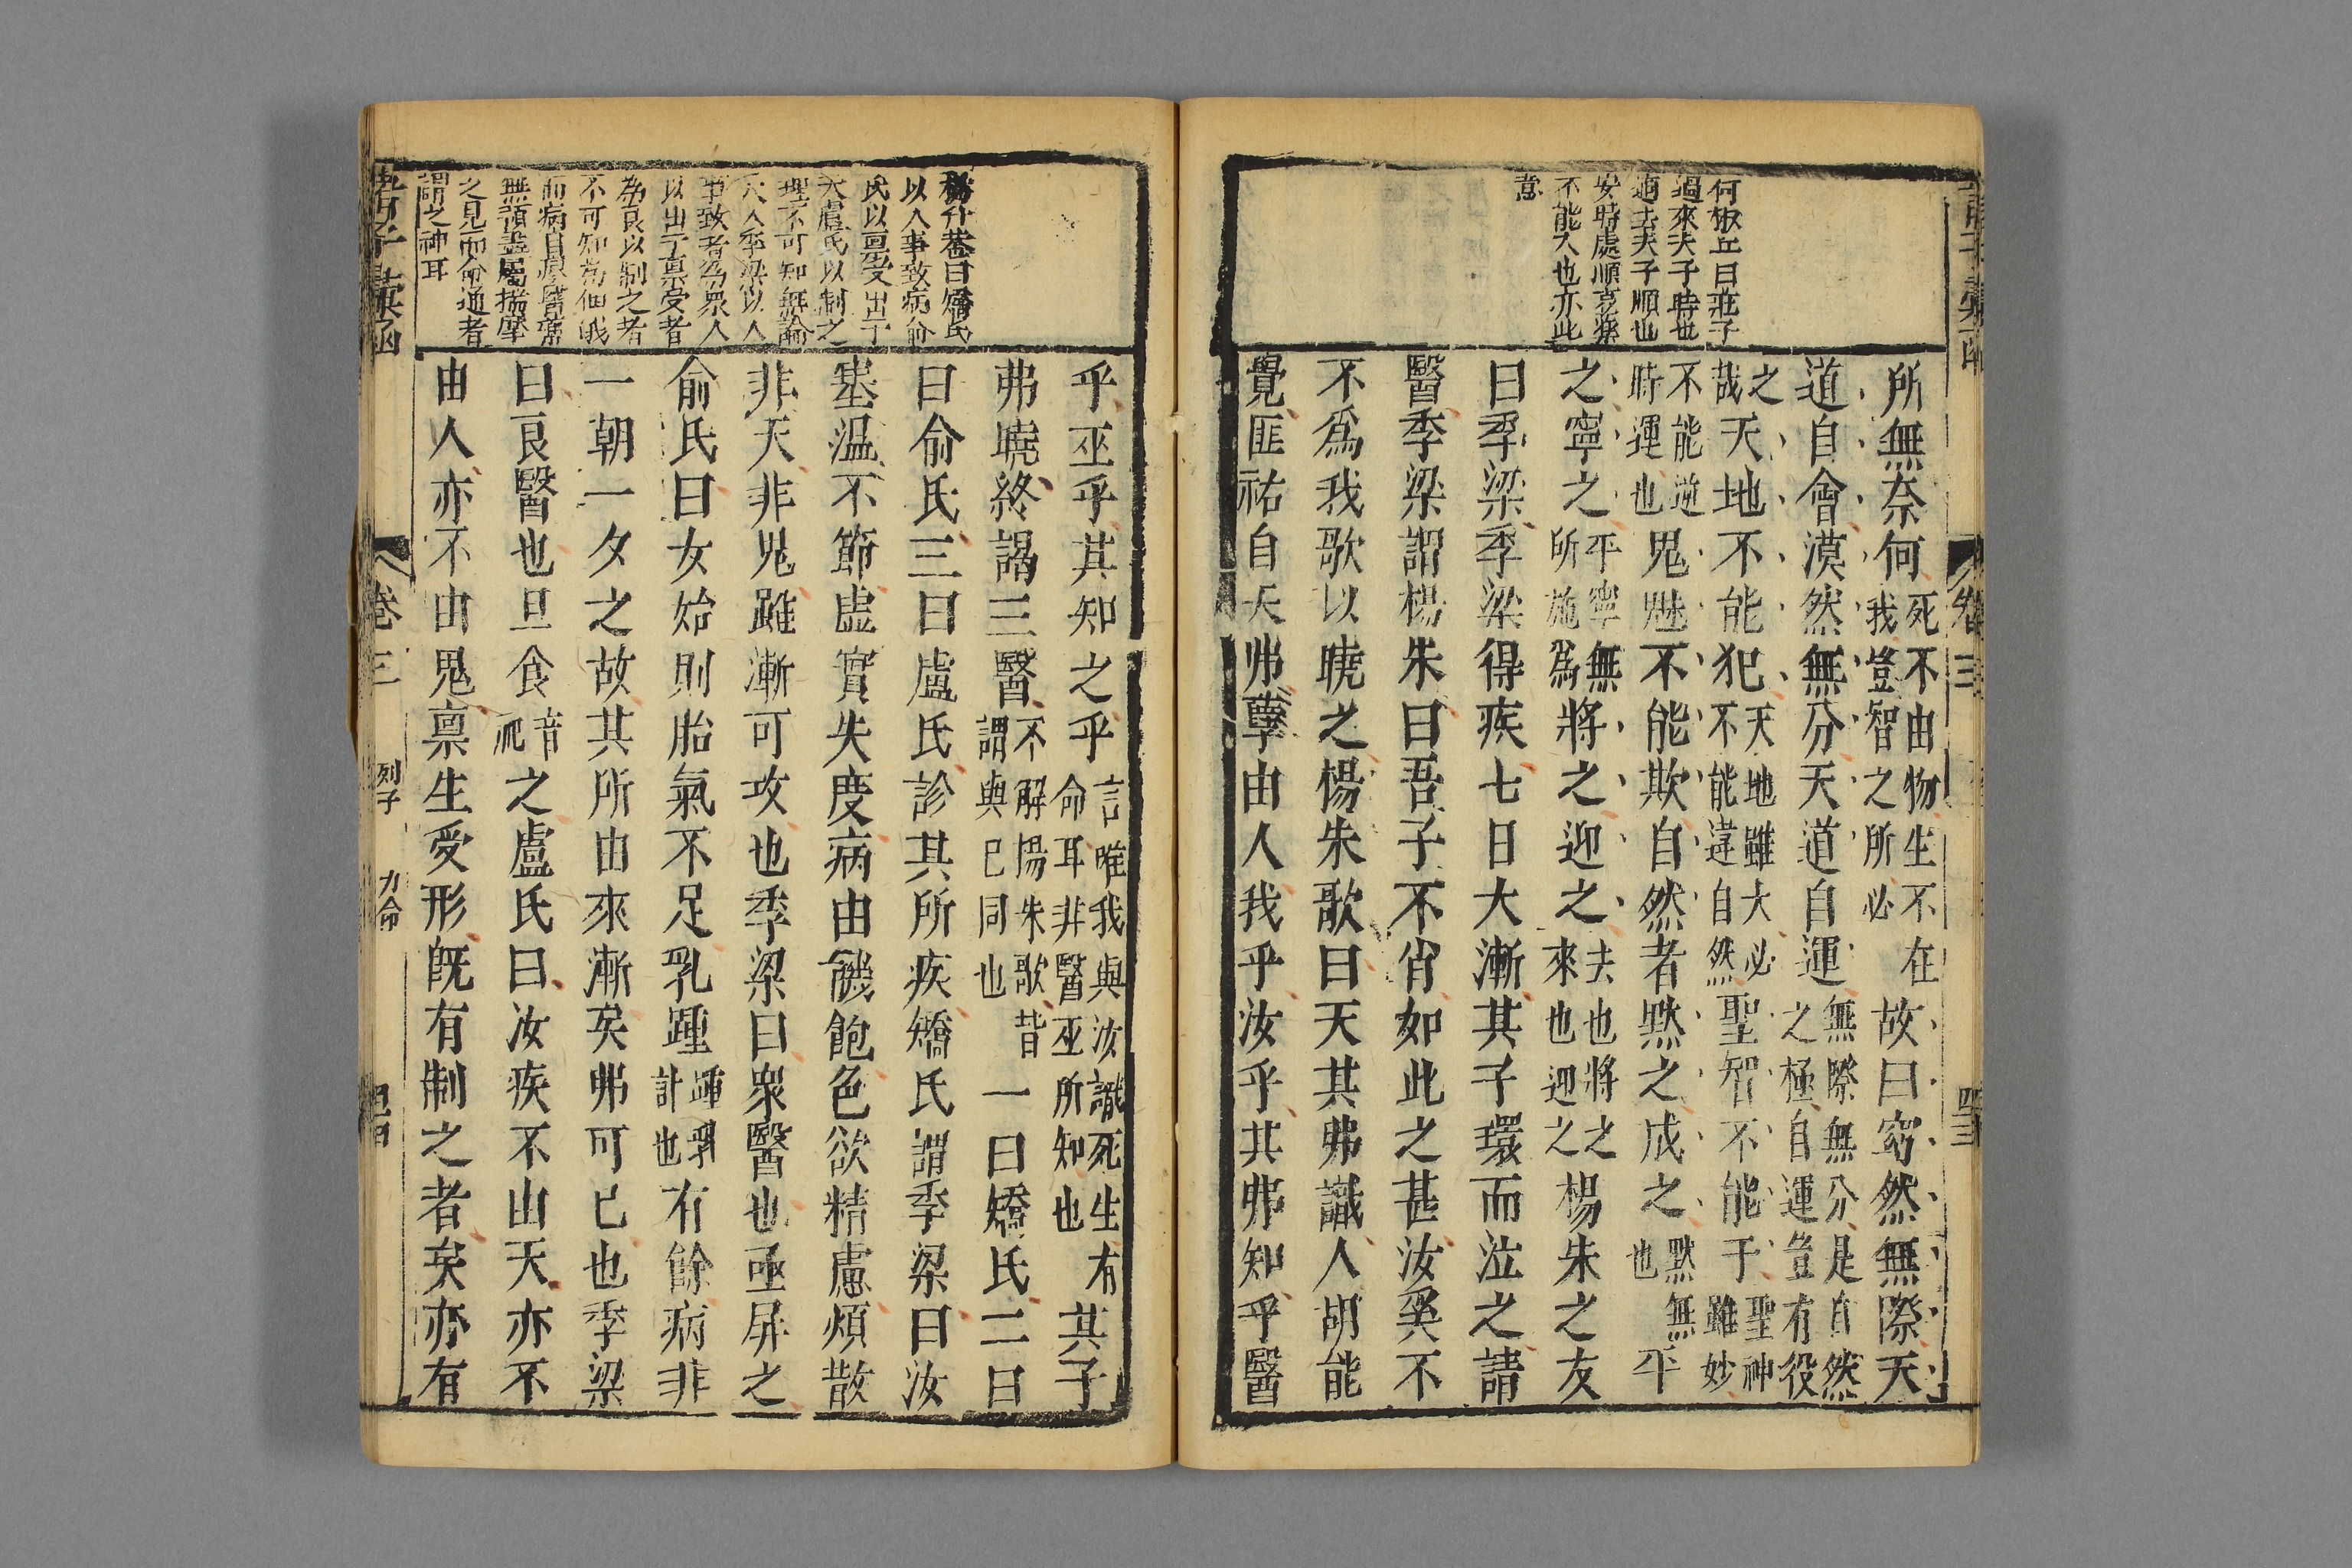 諸子彙函
卷三
何椒丘曰莊子
適來夫子時也
適去夫子順也
安時處順哀樂
不能入也亦此
意
所無奈何死不由物生不在我豈智之所必故曰窈然無際天
道自會漠然無分天道自運無際無分是自然之極自運豈有役
之哉天地不能犯天地雖大必不能違自然聖智不能于聖神雖妙
不能逆時運也鬼魅不能欺自然者默之成之默無也平
之寧之平寧無所施為將之迎之去也將之來也迎之楊朱之友
曰季梁季梁得疾七日大漸其子環而泣之請
醫季梁謂楊朱曰吾子不肖如此之甚汝奚不
不爲我歌以曉之楊朱歌曰天其弗識人胡能
覺匪祐自天弗孽由人我乎汝乎其弗知乎醫
楊升菴曰矯氏
以人事致病俞
氏以稟受出于
天盧氏以制之
理不可知無論
天人季梁以人
事致者為衆人
以出于稟受者
為良以制之者
不可知為神俄
而病自瘳醫藥
無預盡屬揣摩
之見而俞通者
謂之神耳
乎巫乎其知之乎言唯我與汝識死生有命耳非醫巫所知也其子
弗曉終謁三醫不解楊朱歌昔謂與已同也一曰矯氏二曰
曰俞氏三曰盧氏診其所疾矯氏謂季梁曰汝
寒溫不節虛實失度病由饑飽色欲精慮煩散
非天非鬼雖漸可攻也季梁曰衆醫也亟屏之
俞氏曰女始則胎氣不足乳湩湩乳計也有餘病非
一朝一夕之故其所由來漸矣弗可已也季梁
曰良醫也且食音祀之盧氏曰汝疾不由天亦不
由人亦不由鬼稟生受形既有制之者矣亦有
諸子彙函
卷三
列子
力命